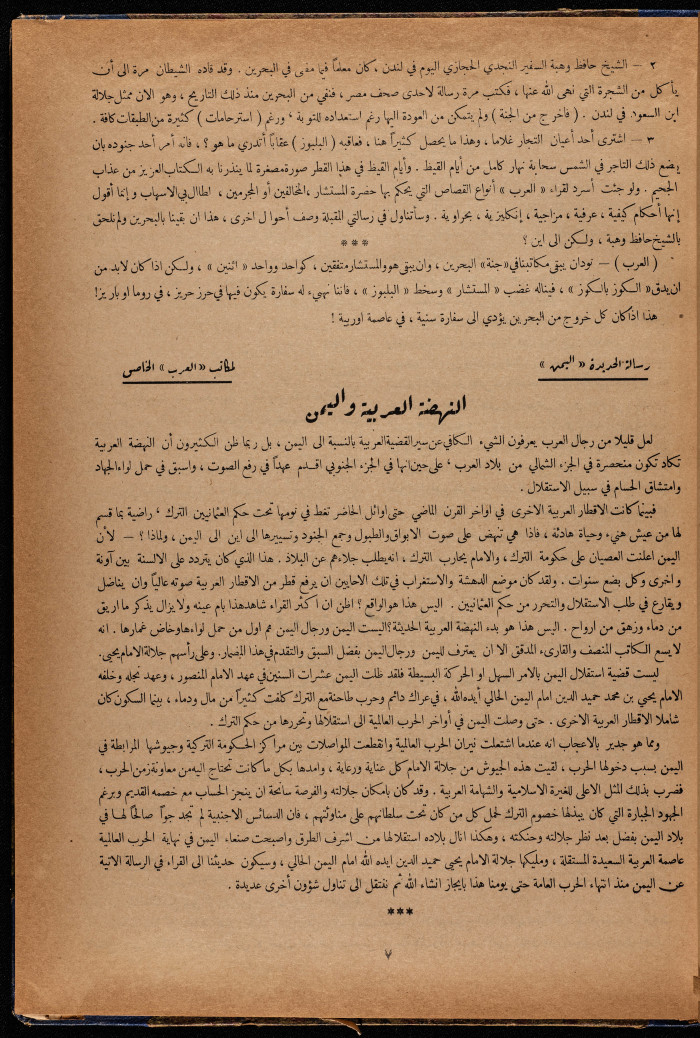 ٢ — الشيخ حافظ وهبة السفير النجدي الحجازي اليوم في لندن ، كان معلماً فيما مضى في البحرين . وقد قاده الشيطان مرة الى أن
يأكل من الشجرة التي نهى الله عنها ، فكتب مرة رسالة لاحدى صحف مصر ، فنفي من البحرين منذ ذلك التاريخ ، وهو الان ممثل جلالة
ابن السعود في لندن . ( فأخرج من الجنة ) ولم يتمكن من العودة اليها رغم استعداده للتوبة ، ورغم ( استرحامات ) كثيرة من الطبقات كافة .
٣ — اشترى أحد أعيان التجار غلاما ، وهذا ما يحصل كثيراً هنا ، فعاقبه ( البليوز ) عقاباً أتدري ما هو ؟ ، فانه أمر أحد جنوده بان
يضع ذلك التاجر في الشمس سحابة نهار كامل من أيام القيظ . وأيام القيظ في هذا القطر صورة مصغرة لما ينذرنا به الكتاب العزيز من عذاب
الجحيم . ولو جئت أسرد لقراء « العرب » أنواع القصاص التي يحكم بها حضرة المستشار ، المخالفين أو المجرمين ، لطال بي الاسهاب و إنما أقول
إنها أحكام كيفية ، عرفية ، مزاجية ، إنكليزية ، بحراوية . وسأتناول في رسالتي المقبلة وصف أحوال اخرى ، هذا ان بقينا بالبحرين ولم نلحق
بالشيخ حافظ وهبة ، ولكن الى اين ؟
***
( العرب ) — نود ان يبقى مكاتبنا في «جنة» البحرين ، وان يبقى هو والمستشار متفقين ، كواحد وواحد « اثنين » ، ولكن اذا كان لابد من
ان يدق « الكوز بالكوز » ، فيناله غضب « المستشار » وسخط « البليوز » ، فاننا نهيء له سفارة يكون فيها في حرز حريز ، في روما او باريز !
هذا اذا كان كل خروج من البحرين يؤدي الى سفارة سنية ، في عاصمة اوربية !
رسالة الحديدة « اليمن »
لمكاتب « العرب » الخاص
النهضة العربية واليمن
لعل قليلا من رجال العرب يعرفون الشيء الكافي عن سير القضية العربية بالنسبة الى اليمن ، بل ربما ظن الكثيرون أن النهضة العربية
تكاد تكون منحصرة في الجزء الشمالي من بلاد العرب ، على حين انها في الجزء الجنوبي اقدم عهداً في رفع الصوت ، واسبق في حمل لواء الجهاد
وامتشاق الحسام في سبيل الاستقلال .
فبينما كانت الاقطار العربية الاخرى في اواخر القرن الماضي حتى اوائل الحاضر تغط في نومها تحت حكم العثمانيين الترك ، راضية بما قسم
لها من عيش هنيء وحياة هادئة ، فاذا هي تنهض على صوت الابواق والطبول وجمع الجنود وتسييرها الى اين الى اليمن ، ولماذا ؟ — لأن
اليمن اعلنت العصيان على حكومة الترك ، والامام يحارب الترك ، انه يطلب جلاءهم عن البلاد . هذا الذي كان يتردد على الالسنة بين آونة
و اخرى وكل بضع سنوات . ولقد كان موضع الدهشة والاستغراب في تلك الاحايين ان يرفع قطر من الاقطار العربية صوته عالياً وان يناضل
ويقارع في طلب الاستقلال والتحرر من حكم العثمانيين . اليس هذا هو الواقع ؟ اظن ان أكثر القراء شاهد هذا بام عينه ولا يزال يذكر ما اريق
من دماء وزهق من ارواح . اليس هذا هو بدء النهضة العربية الحديثة ؟ اليست اليمن ورجال اليمن هم اول من حمل لواءها وخاض غمارها . انه
لا يسع الكاتب المنصف والقارىء المدقق الا ان يعترف لليمن ورجال اليمن بفضل السبق والتقدم في هذا المضمار . وعلى رأسهم جلالة الامام يحيى.
ليست قضية استقلال اليمن بالامر السهل او الحركة البسيطة فلقد ظلت اليمن عشرات السنين في عهد الامام المنصور ، وعهد نجله وخلفه
الامام يحيى بن محمد حميد الدين امام اليمن الحالي أيده الله ، في عراك دائم وحرب طاحنة مع الترك كلفت كثيراً من مال ودماء ، بينما السكون كان
شاملا الاقطار العربية الاخرى . حتى وصلت اليمن في أواخر الحرب العالمية الى استقلالها وتحررها من حكم الترك .
ومما هو جدير بالاعجاب انه عندما اشتعلت نيران الحرب العالمية وانقطعت المواصلات بين مراكز الحكومة التركية وجيوشها المرابطة في
اليمن بسبب دخولها الحرب ، لقيت هذه الجيوش من جلالة الامام كل عناية ورعاية ، وامدها بكل ما كانت تحتاج اليه من معاونة زمن الحرب ،
فضرب بذلك المثل الاعلى للغيرة الاسلامية والشهامة العربية . وقد كان بامكان جلالته والفرصة سانحة ان ينجز الحساب مع خصمه القديم وبرغم
الجهود الجبارة التي كان يبذلها خصوم الترك لحمل كل من كان تحت سلطانهم على مناوئتهم ، فان الدسائس الاجنبية لم تجد جواً صالحاً لها في
بلاد اليمن بفضل بعد نظر جلالته وحنكته ، وهكذا انال بلاده استقلالها من اشرف الطرق واصبحت صنعاء اليمن في نهاية الحرب العالمية
عاصمة العربية السعيدة المستقلة ، ومليكها جلالة الامام يحيى حميد الدين ايده الله امام اليمن الحالي ، وسيكون حديثنا الى القراء في الرسالة الاتية
عن اليمن منذ انتهاء الحرب العامة حتى يومنا هذا بايجاز انشاء الله ثم ننتقل الى تناول شؤون أخرى عديدة .
***
٧